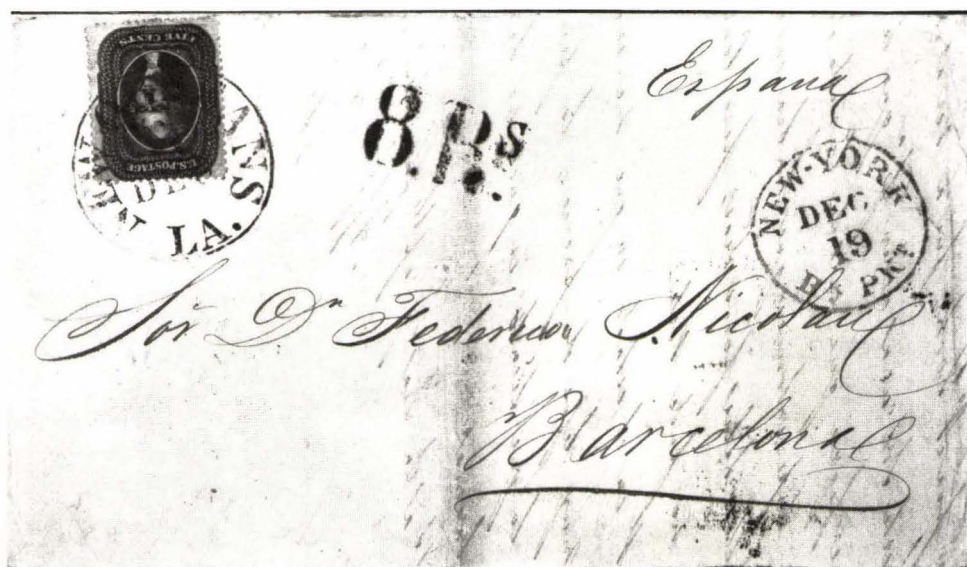 FIVE CENTS
U.S. POSTAGE
NEW ANS
DEC
LA.
8.Rs.
España
NEW-YORK
DEC
19
Br PKT.
Sor Dn Federico Nicolau
Barcelona